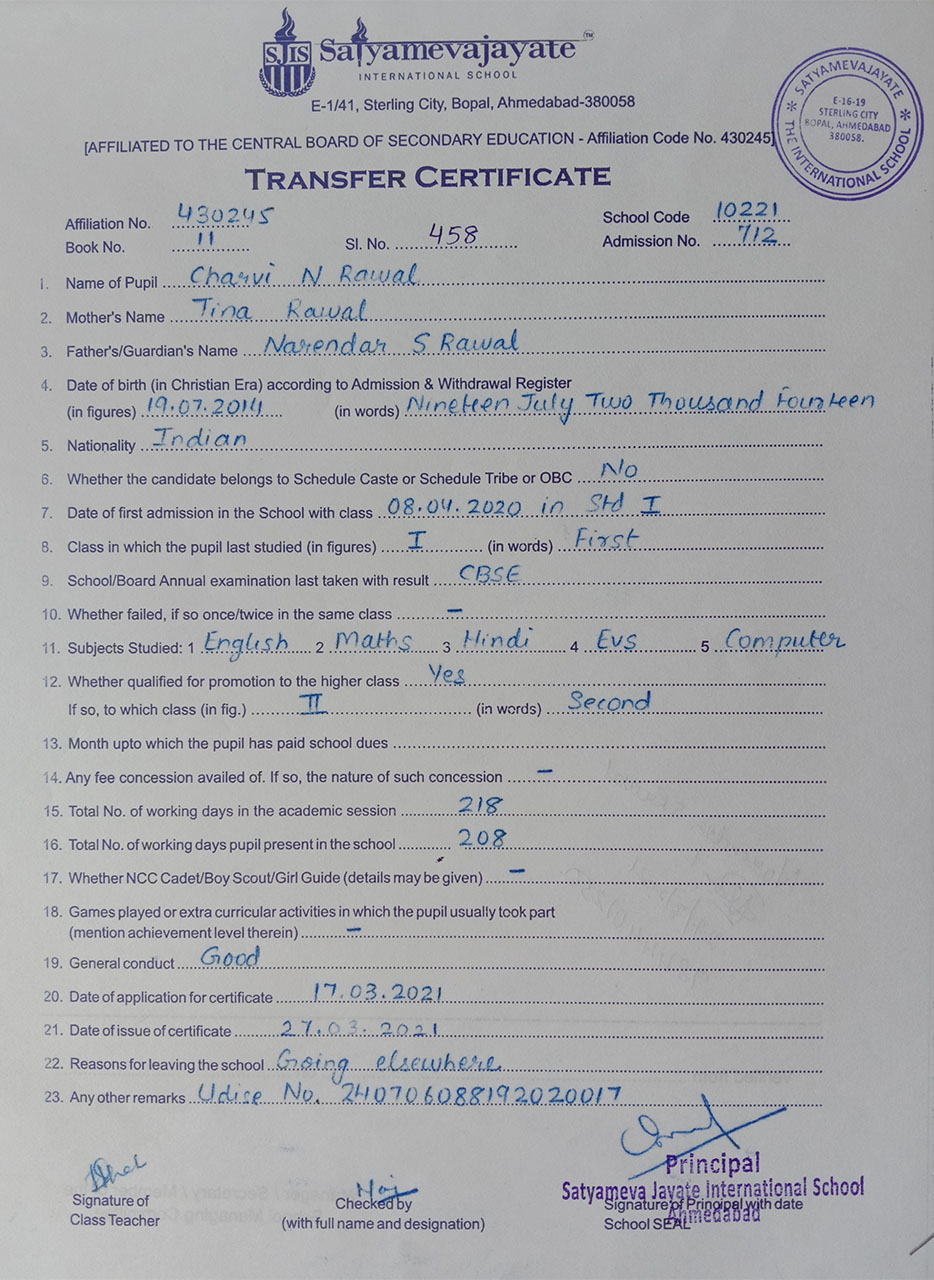 SJIS Satyamevajayate TM
INTERNATIONAL SCHOOL
E-1/41, Sterling City, Bopal, Ahmedabad-380058
SATYAMEVAJAYATE
* THE INTERNATIONAL SCHOOL *
E-16-19
STERLING CITY
BOPAL, AHMEDABAD
380058.
[AFFILIATED TO THE CENTRAL BOARD OF SECONDARY EDUCATION - Affiliation Code No. 430245]
TRANSFER CERTIFICATE
Affiliation No. 430245 School Code 10221
Book No. 11 Sl. No. 458 Admission No. 712
1. Name of Pupil Charvi N Rawal
2. Mother's Name Tina Rawal
3. Father's/Guardian's Name Narendar S Rawal
4. Date of birth (in Christian Era) according to Admission & Withdrawal Register
(in figures) 19.07.2014 (in words) Nineteen July Two Thousand Fourteen
5. Nationality Indian
6. Whether the candidate belongs to Schedule Caste or Schedule Tribe or OBC No
7. Date of first admission in the School with class 08.04.2020 in Std I
8. Class in which the pupil last studied (in figures) I (in words) First
9. School/Board Annual examination last taken with result CBSE
10. Whether failed, if so once/twice in the same class –
11. Subjects Studied: 1 English 2 Maths 3 Hindi 4 Evs 5 Computer
12. Whether qualified for promotion to the higher class Yes
If so, to which class (in fig.) II (in words) Second
13. Month upto which the pupil has paid school dues
14. Any fee concession availed of. If so, the nature of such concession –
15. Total No. of working days in the academic session 218
16. Total No. of working days pupil present in the school 208
17. Whether NCC Cadet/Boy Scout/Girl Guide (details may be given) –
18. Games played or extra curricular activities in which the pupil usually took part
(mention achievement level therein) –
19. General conduct Good
20. Date of application for certificate 17.03.2021
21. Date of issue of certificate 27.03.2021
22. Reasons for leaving the school Going elsewhere
23. Any other remarks Udise No. 240706088192020017
Principal
Satyameva Jayate International School
Ahmedabad
Signature of
Class Teacher
Checked by
(with full name and designation)
Signature of Principal with date
School SEAL